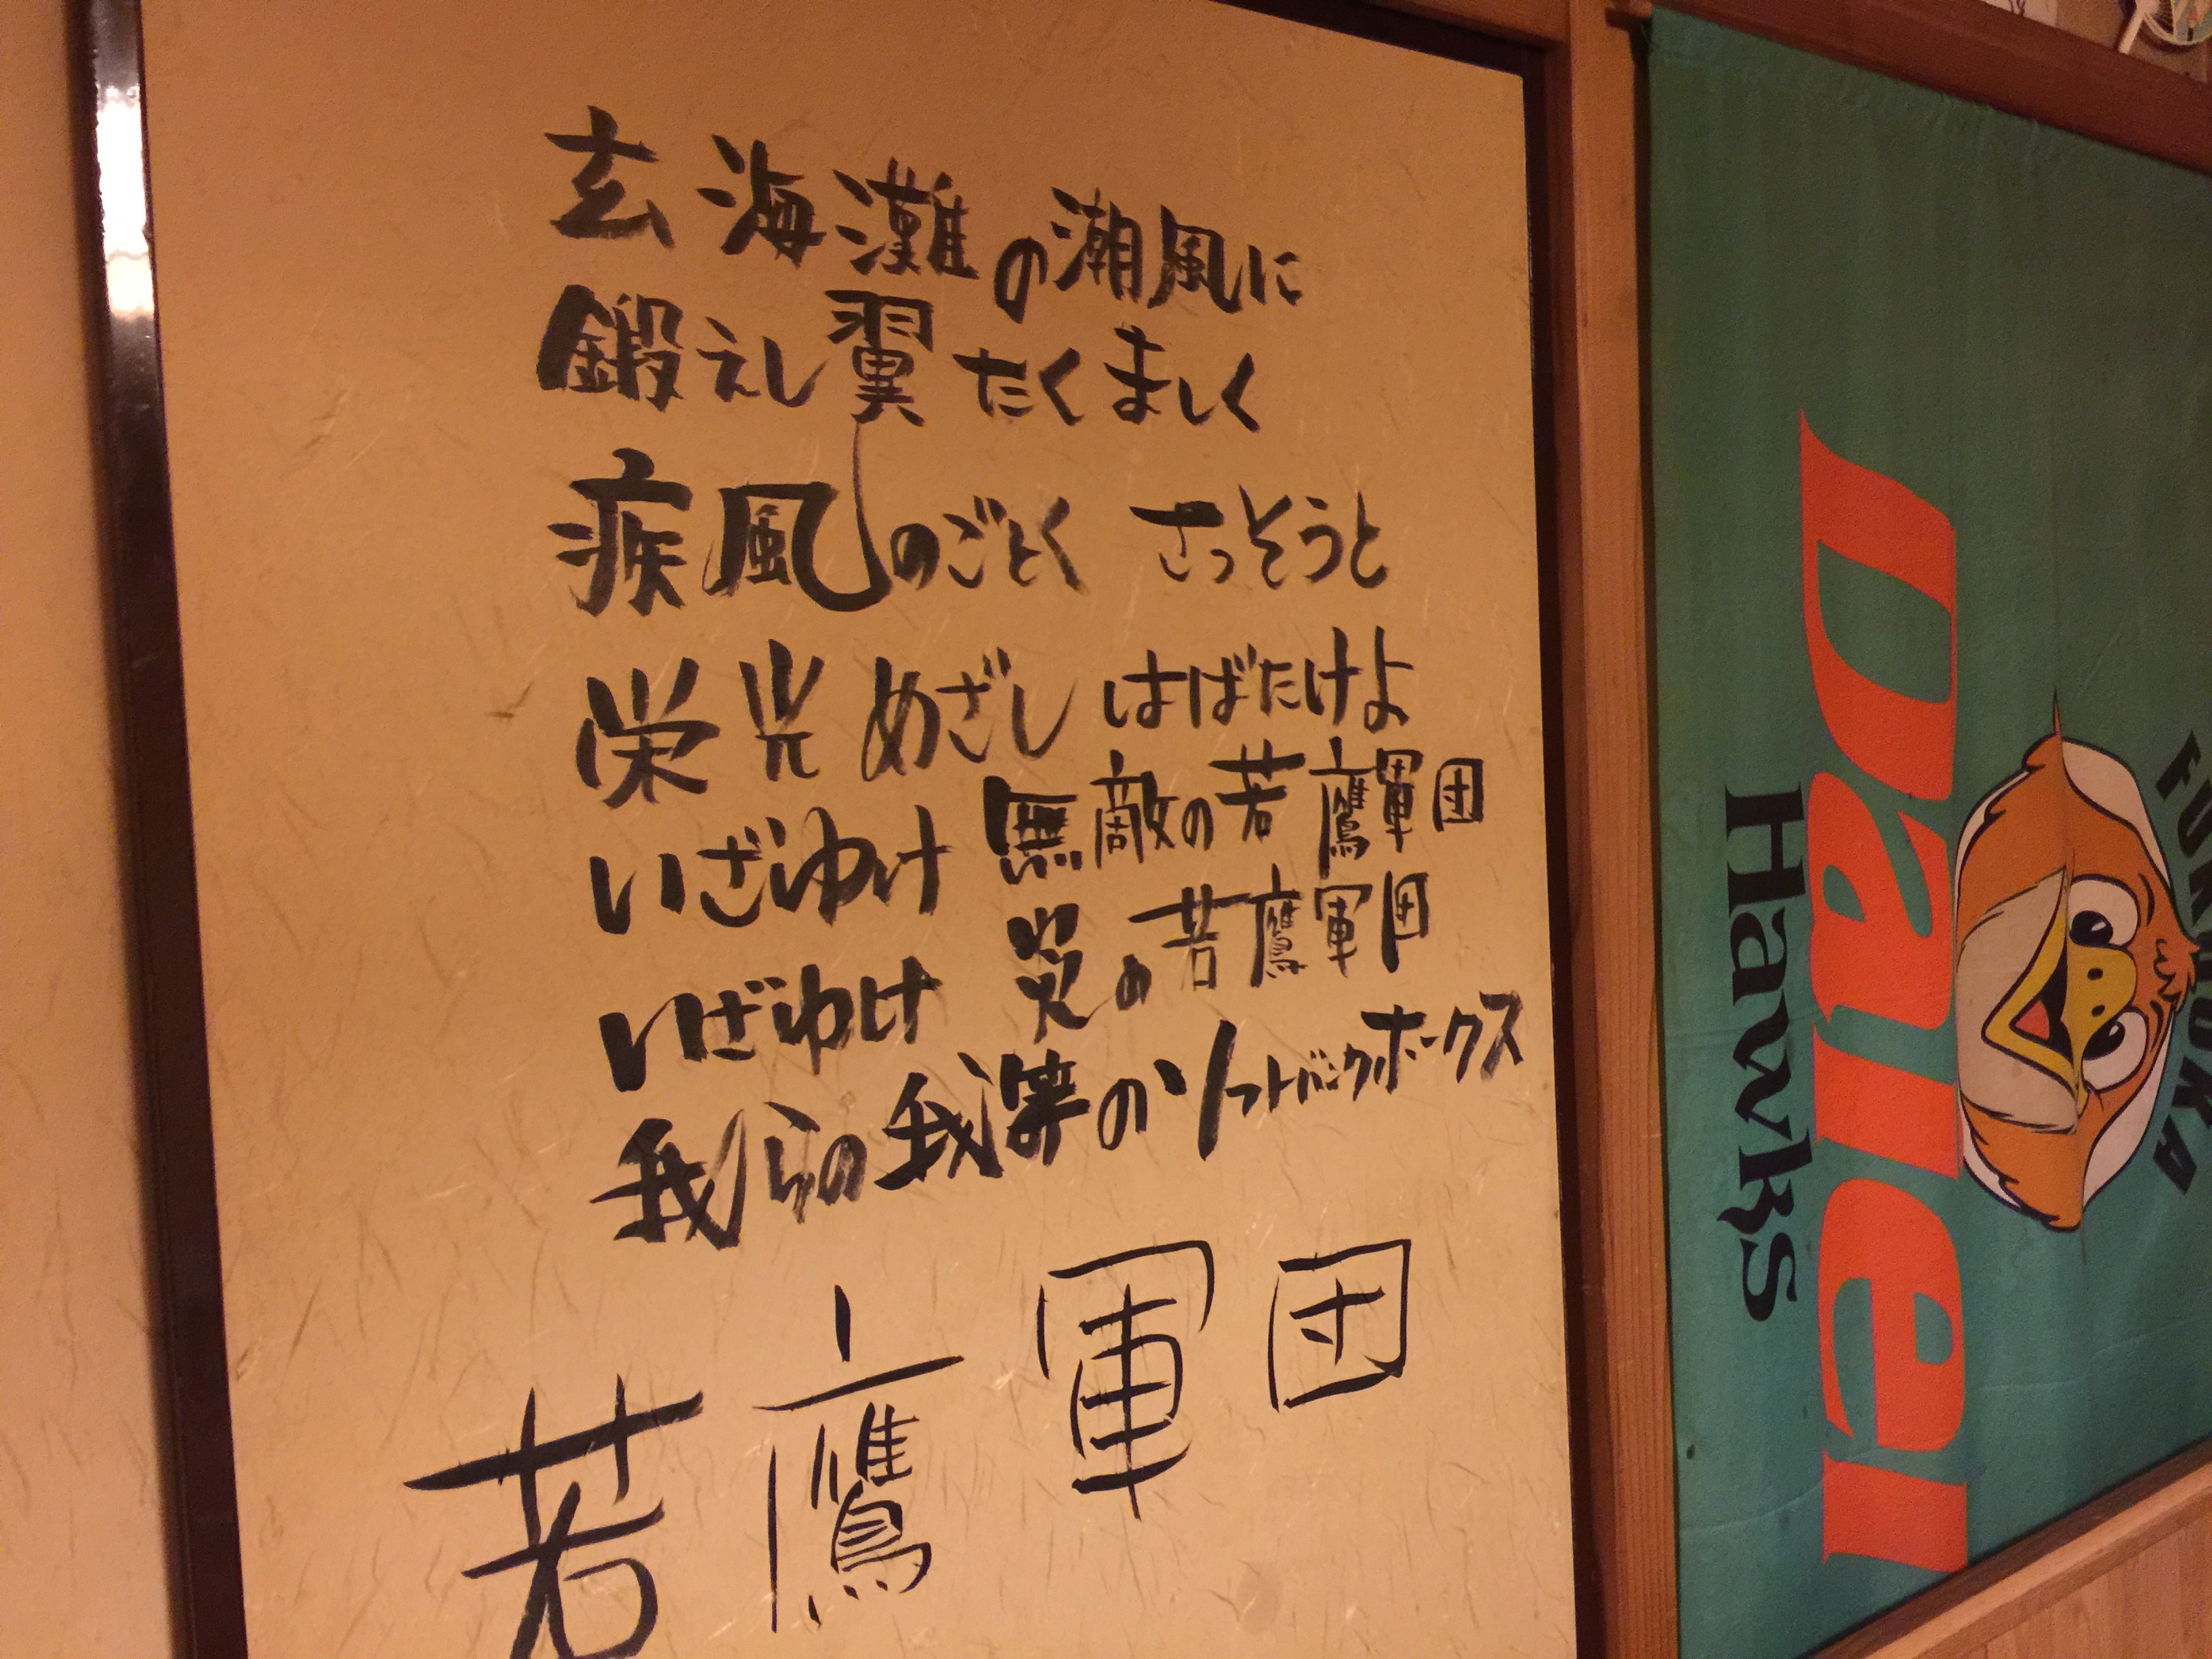 玄海灘の潮風に
鍛えし翼たくましく
疾風のごとく さっそうと
栄光めざし はばたけよ
いざゆけ 無敵の若鷹軍団
いざゆけ 炎の若鷹軍団
我らの我等のソフトバンクホークス
若鷹軍団
FUKUOKA
Daiei
Hawks